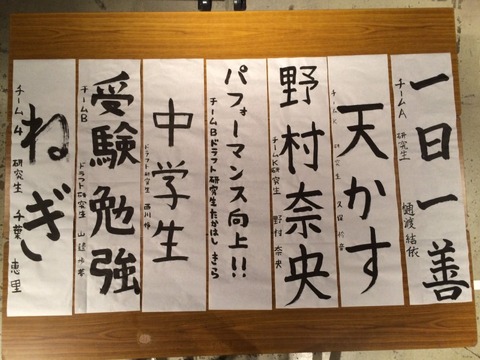 一日一善
チームA 研究生 樋渡結依
天かす
チーム 研究生 久保怜音
野村奈央
チームK研究生 野村奈央
パフォーマンス向上!!
チームBドラフト研究生たかはし きら
中学生
ドラフト研究生 西川怜
受験勉強
チームB ドラフト研究生 山邊歩夢
ねぎ
チーム4 研究生 千葉恵里